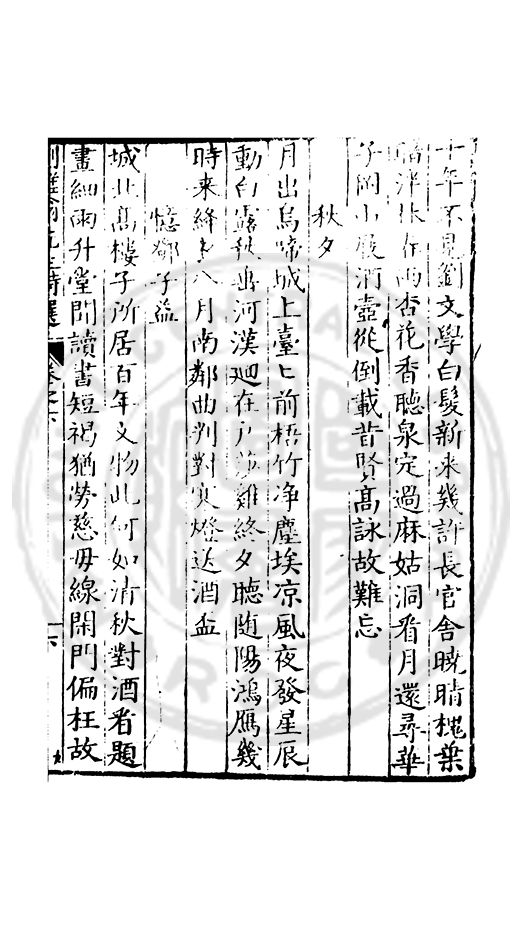 十年不見劉文學白髮新来幾許長官舍曉晴槐葉
暗泮林春雨杏花香聽泉定過麻姑洞看月還尋華
子岡山殽酒壺從倒載昔賢高詠故難忘
秋夕
月出烏啼城上臺臺前梧竹净塵埃凉風夜發星辰
動白露秋橫河漢廻在戶莎雞終夕聽随陽鴻鴈幾
時来絳紗八月南鄰曲判對寒燈送酒盃
憶鄒子益
城北髙樓子所居百年文物此何如清秋對酒看題
畫細雨升堂問讀書短褐猶勞慈母線閑門偏枉故
詩選 卷之六